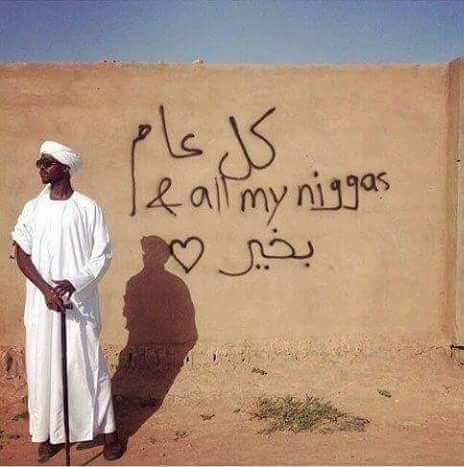 كل عام
& all my niggas
بخير ♡